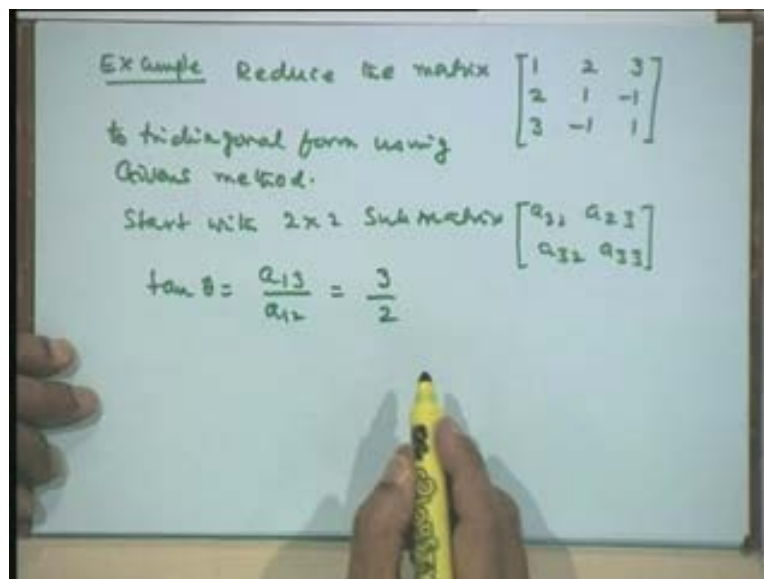 Example Reduce the matrix [1 2 3
2 1 -1
3 -1 1]
to tridiagonal form using
Givens method.
Start with 2x2 Submatrix [a22 a23
a32 a33]
tan θ = a13/a12 = 3/2